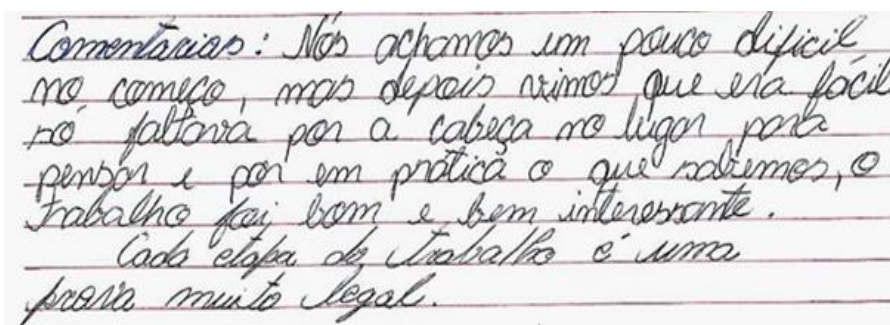 Comentários: Nós achamos um pouco dificil
no começo, mas depois vimos que era fácil
só faltava por a cabeça no lugar para
pensar e por em prática o que sabemos, o
trabalho foi bom e bem interessante.
Cada etapa do trabalho é uma
prova muito legal.